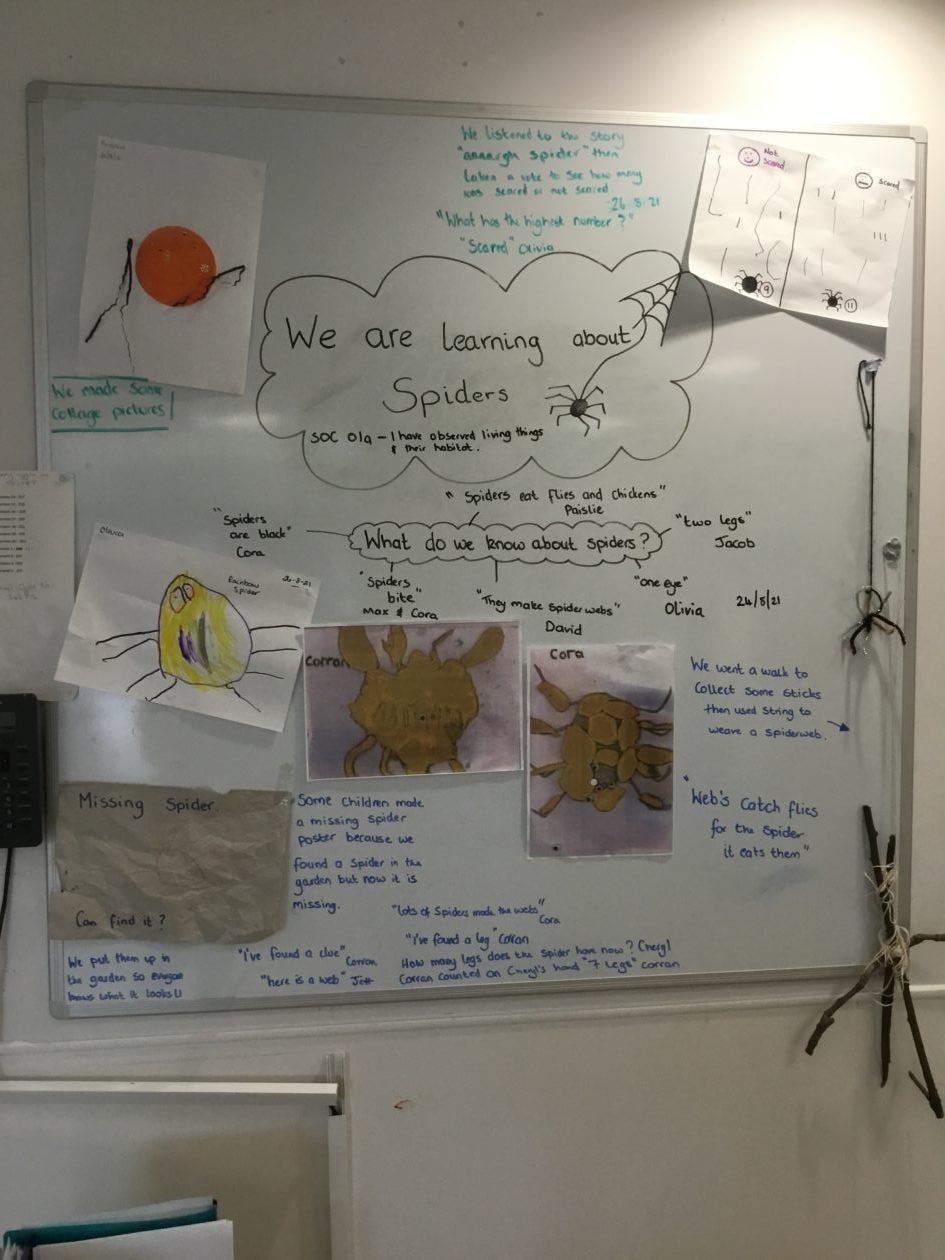 We listened to the story
"aaaargh spider" then
taken a vote to see how many
was scared or not scared.
26.5.21
"What has the highest number?"
"Scared" Olivia
Not
Scared
Scared
9
11
We made some
collage pictures
We are learning about
Spiders
SOC 01a - I have observed living things
& their habitat.
"Spiders eat flies and chickens"
Paislie
"Spiders
are black"
Cora
What do we know about spiders?
"two legs"
Jacob
"Spiders
bite"
Max & Cora
"They make spiderwebs"
David
"one eye"
Olivia
26/5/21
Olivia
Rainbow
Spider
Corran
Cora
We went a walk to
collect some sticks
then used string to
weave a spiderweb.
"Web's catch flies
for the spider
it eats them"
Missing Spider.
Can find it?
Some children made
a missing spider
poster because we
found a spider in the
garden but now it is
missing.
We put them up in
the garden so
knows what it looks
"I've found a clue" Corran
"here is a web"
"lots of spiders made the webs"
Cora
"I've found a leg" Corran
How many legs does the spider have now? Cheryl
Corran counted on Cheryl's hand "7 legs" Corran